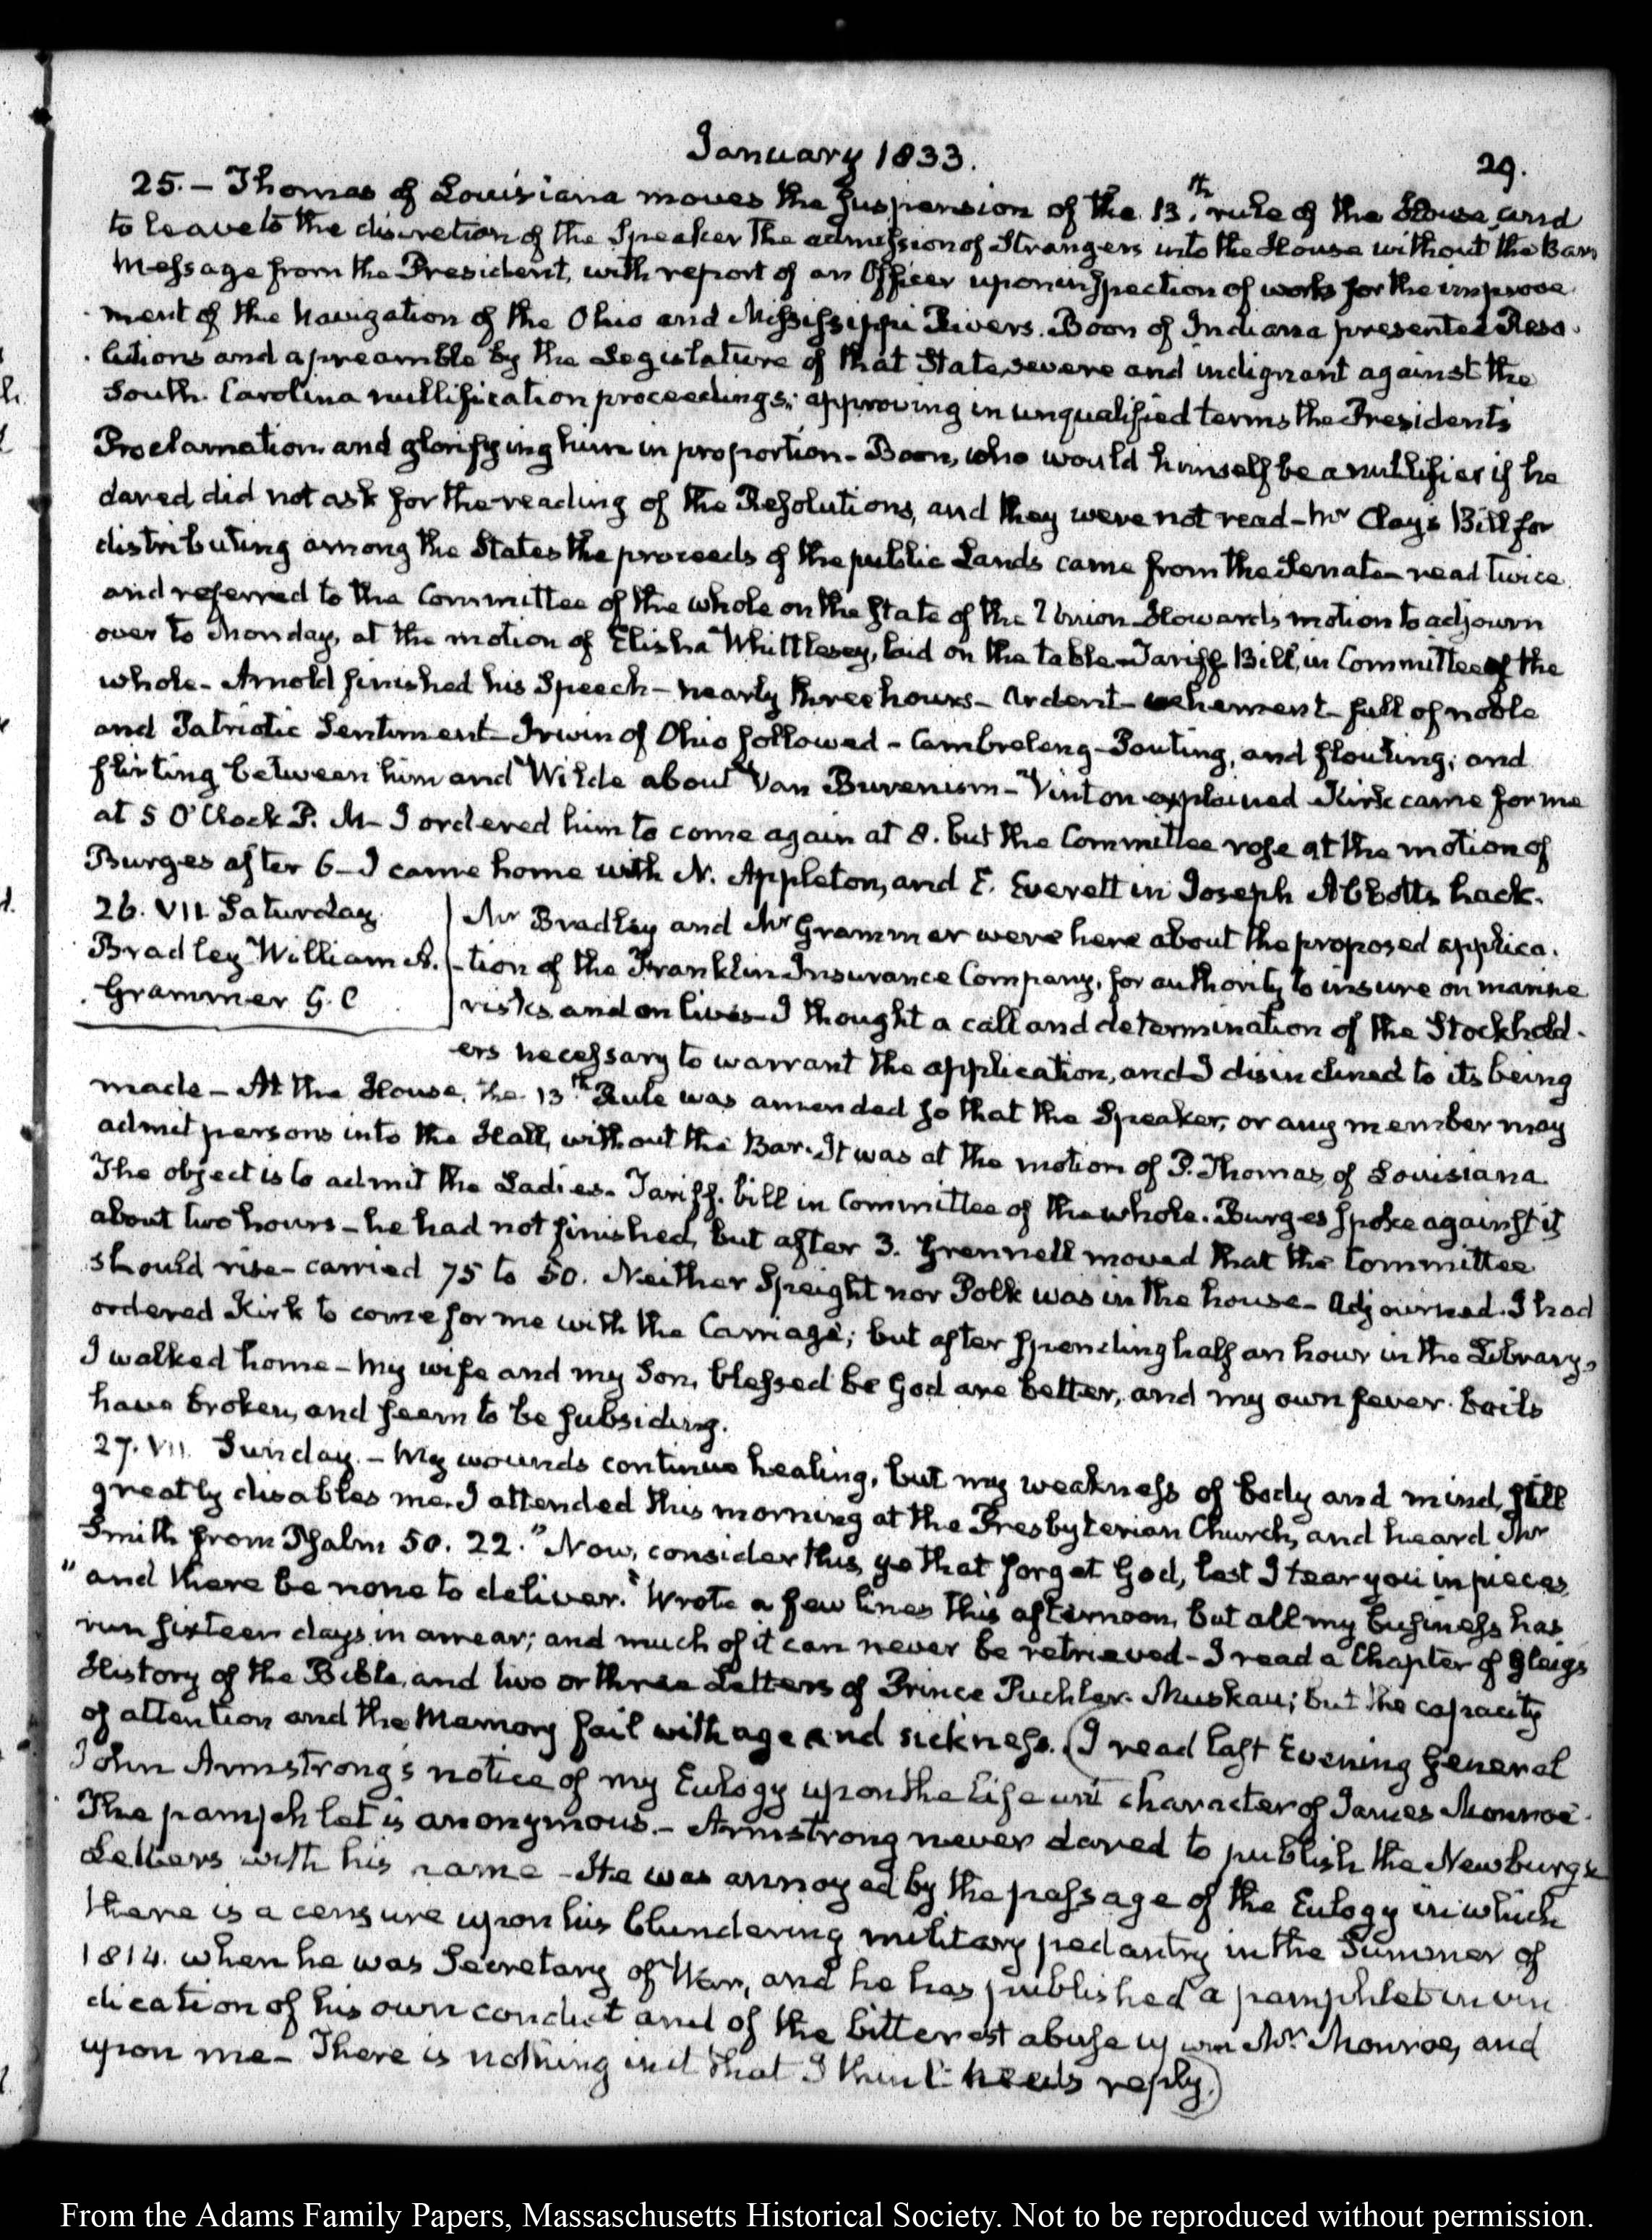 January 1833.
29.
25. – Thomas of Louisiana moves the suspension of the 13.th rule of the House, and
to leave to the discretion of the Speaker the admission of Strangers into the House without the Bar.
Message from the President, with report of an Officer upon inspection of works for the improve-
ment of the Navigation of the Ohio and Mississippi Rivers. Boon of Indiana presented Reso-
lutions and a preamble by the Legislature of that State, severe and indignant against the
South-Carolina nullification proceedings; approving in unqualified terms the President's
Proclamation and glorifying him in proportion – Boon, who would himself be a nullifier if he
dared did not ask for the reading of the Resolutions, and they were not read – Mr Clay's Bill for
distributing among the States the proceeds of the public Lands came from the Senate – read twice
and referred to the Committee of the whole on the state of the Union – Howard's motion to adjourn
over to Monday, at the motion of Elisha Whittlesey, laid on the table – Tariff Bill, in Committee of the
whole – Arnold finished his Speech – nearly three hours – ardent – vehement – full of noble
and Patriotic Sentiment – Irwin of Ohio followed – Cambreleng – Pouting, and flouting; and
flirting between him and Wilde about Van Burenism – Vinton explained – Kirk came for me
at 5 O'Clock P. M – I ordered him to come again at 8. but the Committee rose at the motion of
Burges after 6 – I came home with N. Appleton, and E. Everett in Joseph Abbott's hack.
26. VII. Saturday.
Bradley William A.
Grammer G. C
Mr Bradley and Mr Grammer were here about the proposed applica-
-tion of the Franklin Insurance Company, for authority to insure on marine
risks and on lives – I thought a call and determination of the Stockhold-
-ers necessary to warrant the application, and I disinclined to its being
made – At the House, the 13th Rule was amended so that the Speaker, or any member may
admit persons into the Hall, without the Bar. It was at the motion of P. Thomas, of Louisiana
The object is to admit the Ladies. Tariff bill in Committee of the whole. Burges spoke against it
about two hours – he had not finished, but after 3. Grennell moved that the Committee
should rise – carried 75 to 50. Neither Speight nor Polk was in the house – Adjourned. I had
ordered Kirk to come for me with the Carriage; but after spending half an hour in the Library,
I walked home – My wife and my Son, blessed be God are better, and my own fever boils
have broken, and seem to be subsiding.
27. VII. Sunday. – My wounds continue healing, but my weakness of body and mind, still
greatly disables me. I attended this morning at the Presbyterian Church, and heard Mr
Smith from Psalm 50. 22. "Now, consider this, ye that forget God, lest I tear you in pieces,
"and there be none to deliver." Wrote a few lines this afternoon, but all my business has
run sixteen days in arrear; and much of it can never be retrieved – I read a Chapter of Gleig's
History of the Bible, and two or three Letters of Prince Puckler-Muskau; but the capacity
of attention and the Memory fail with age and sickness. (I read last Evening General
John Armstrong's notice of my Eulogy upon the Life and character of James Monroe.
The pamphlet is anonymous. – Armstrong never dared to publish the Newburgh
Letters with his name – He was annoyed by the passage of the Eulogy in which
there is a censure upon his blundering military pedantry in the Summer of
1814. when he was Secretary of War, and he has published a pamphlet in vin-
dication of his own conduct and of the bitterest abuse upon Mr. Monroe, and
upon me – There is nothing in it that I think needs reply.)
From the Adams Family Papers, Massaschusetts Historical Society. Not to be reproduced without permission.